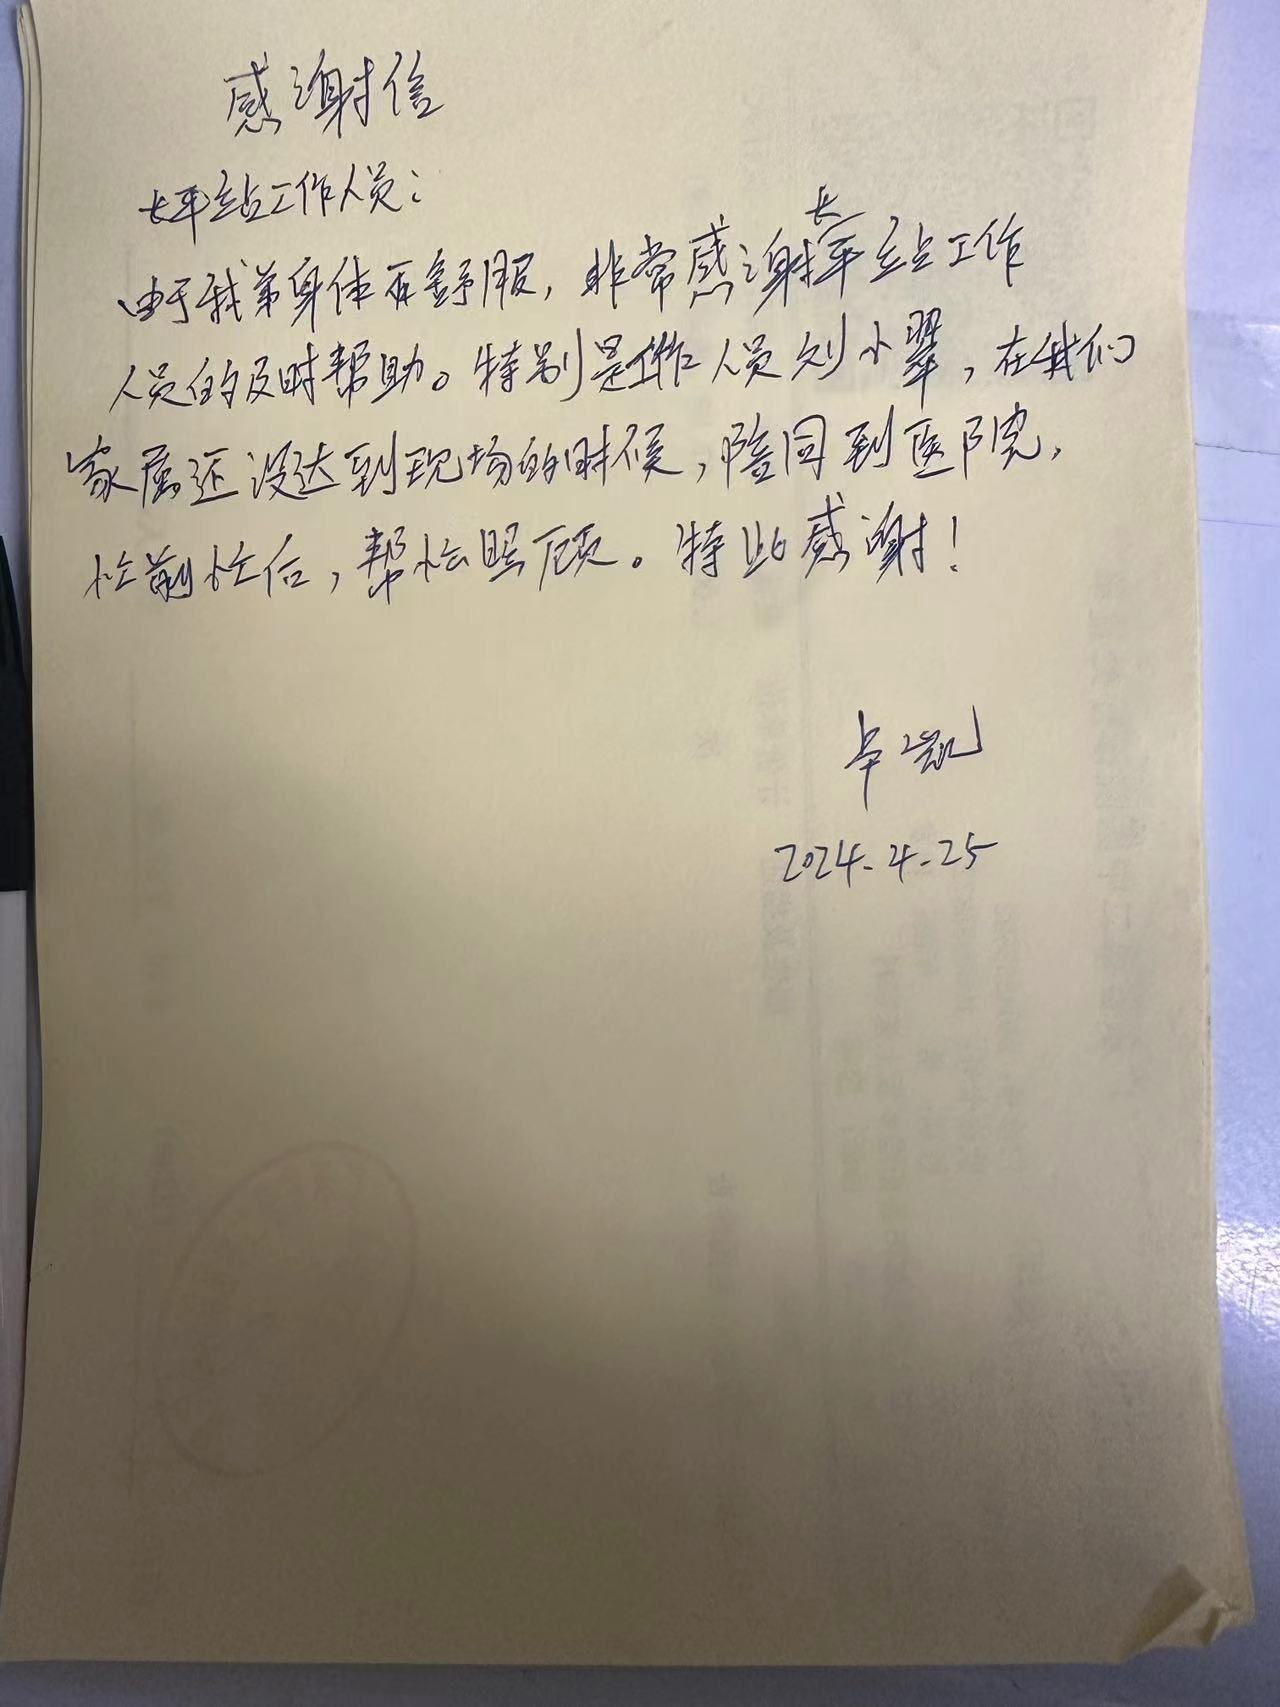 感谢信
长平站工作人员：
由于我弟身体不舒服，非常感谢长平站工作
人员的及时帮助。特别是工作人员刘小翠，在我们
家属还没达到现场的时候，陪同到医院，
忙前忙后，帮忙照顾。特此感谢！
卓凯
2024.4.25